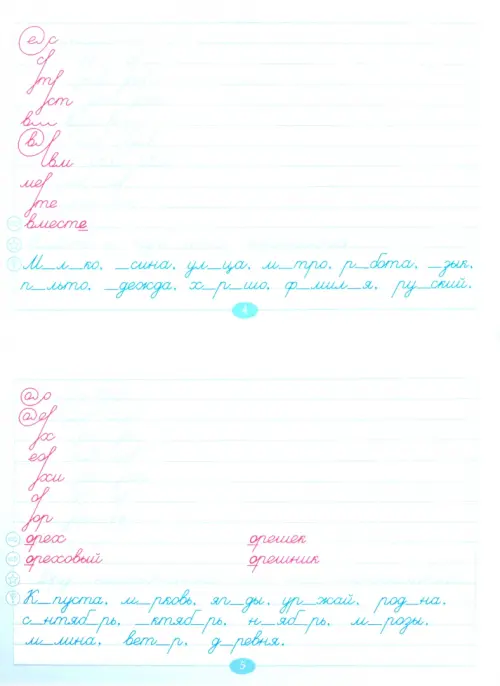 е с
с
т
ст
вм
в
вм
ме
те
вместе
М_л_ко, _сина, ул_ца, м_тро, р_бота, _зык,
п_льто, _дежда, х_р_шо, ф_мил_я, ру_ский.
4
а о
а е
х
ео
хи
о
ор
орех орешек
ореховый орешник
К_пуста, м_рковь, яг_ды, ур_жай, род_на,
с_нтябрь, _ктябрь, н_ябрь, м_розы,
м_лина, вет_р, д_ревня.
5